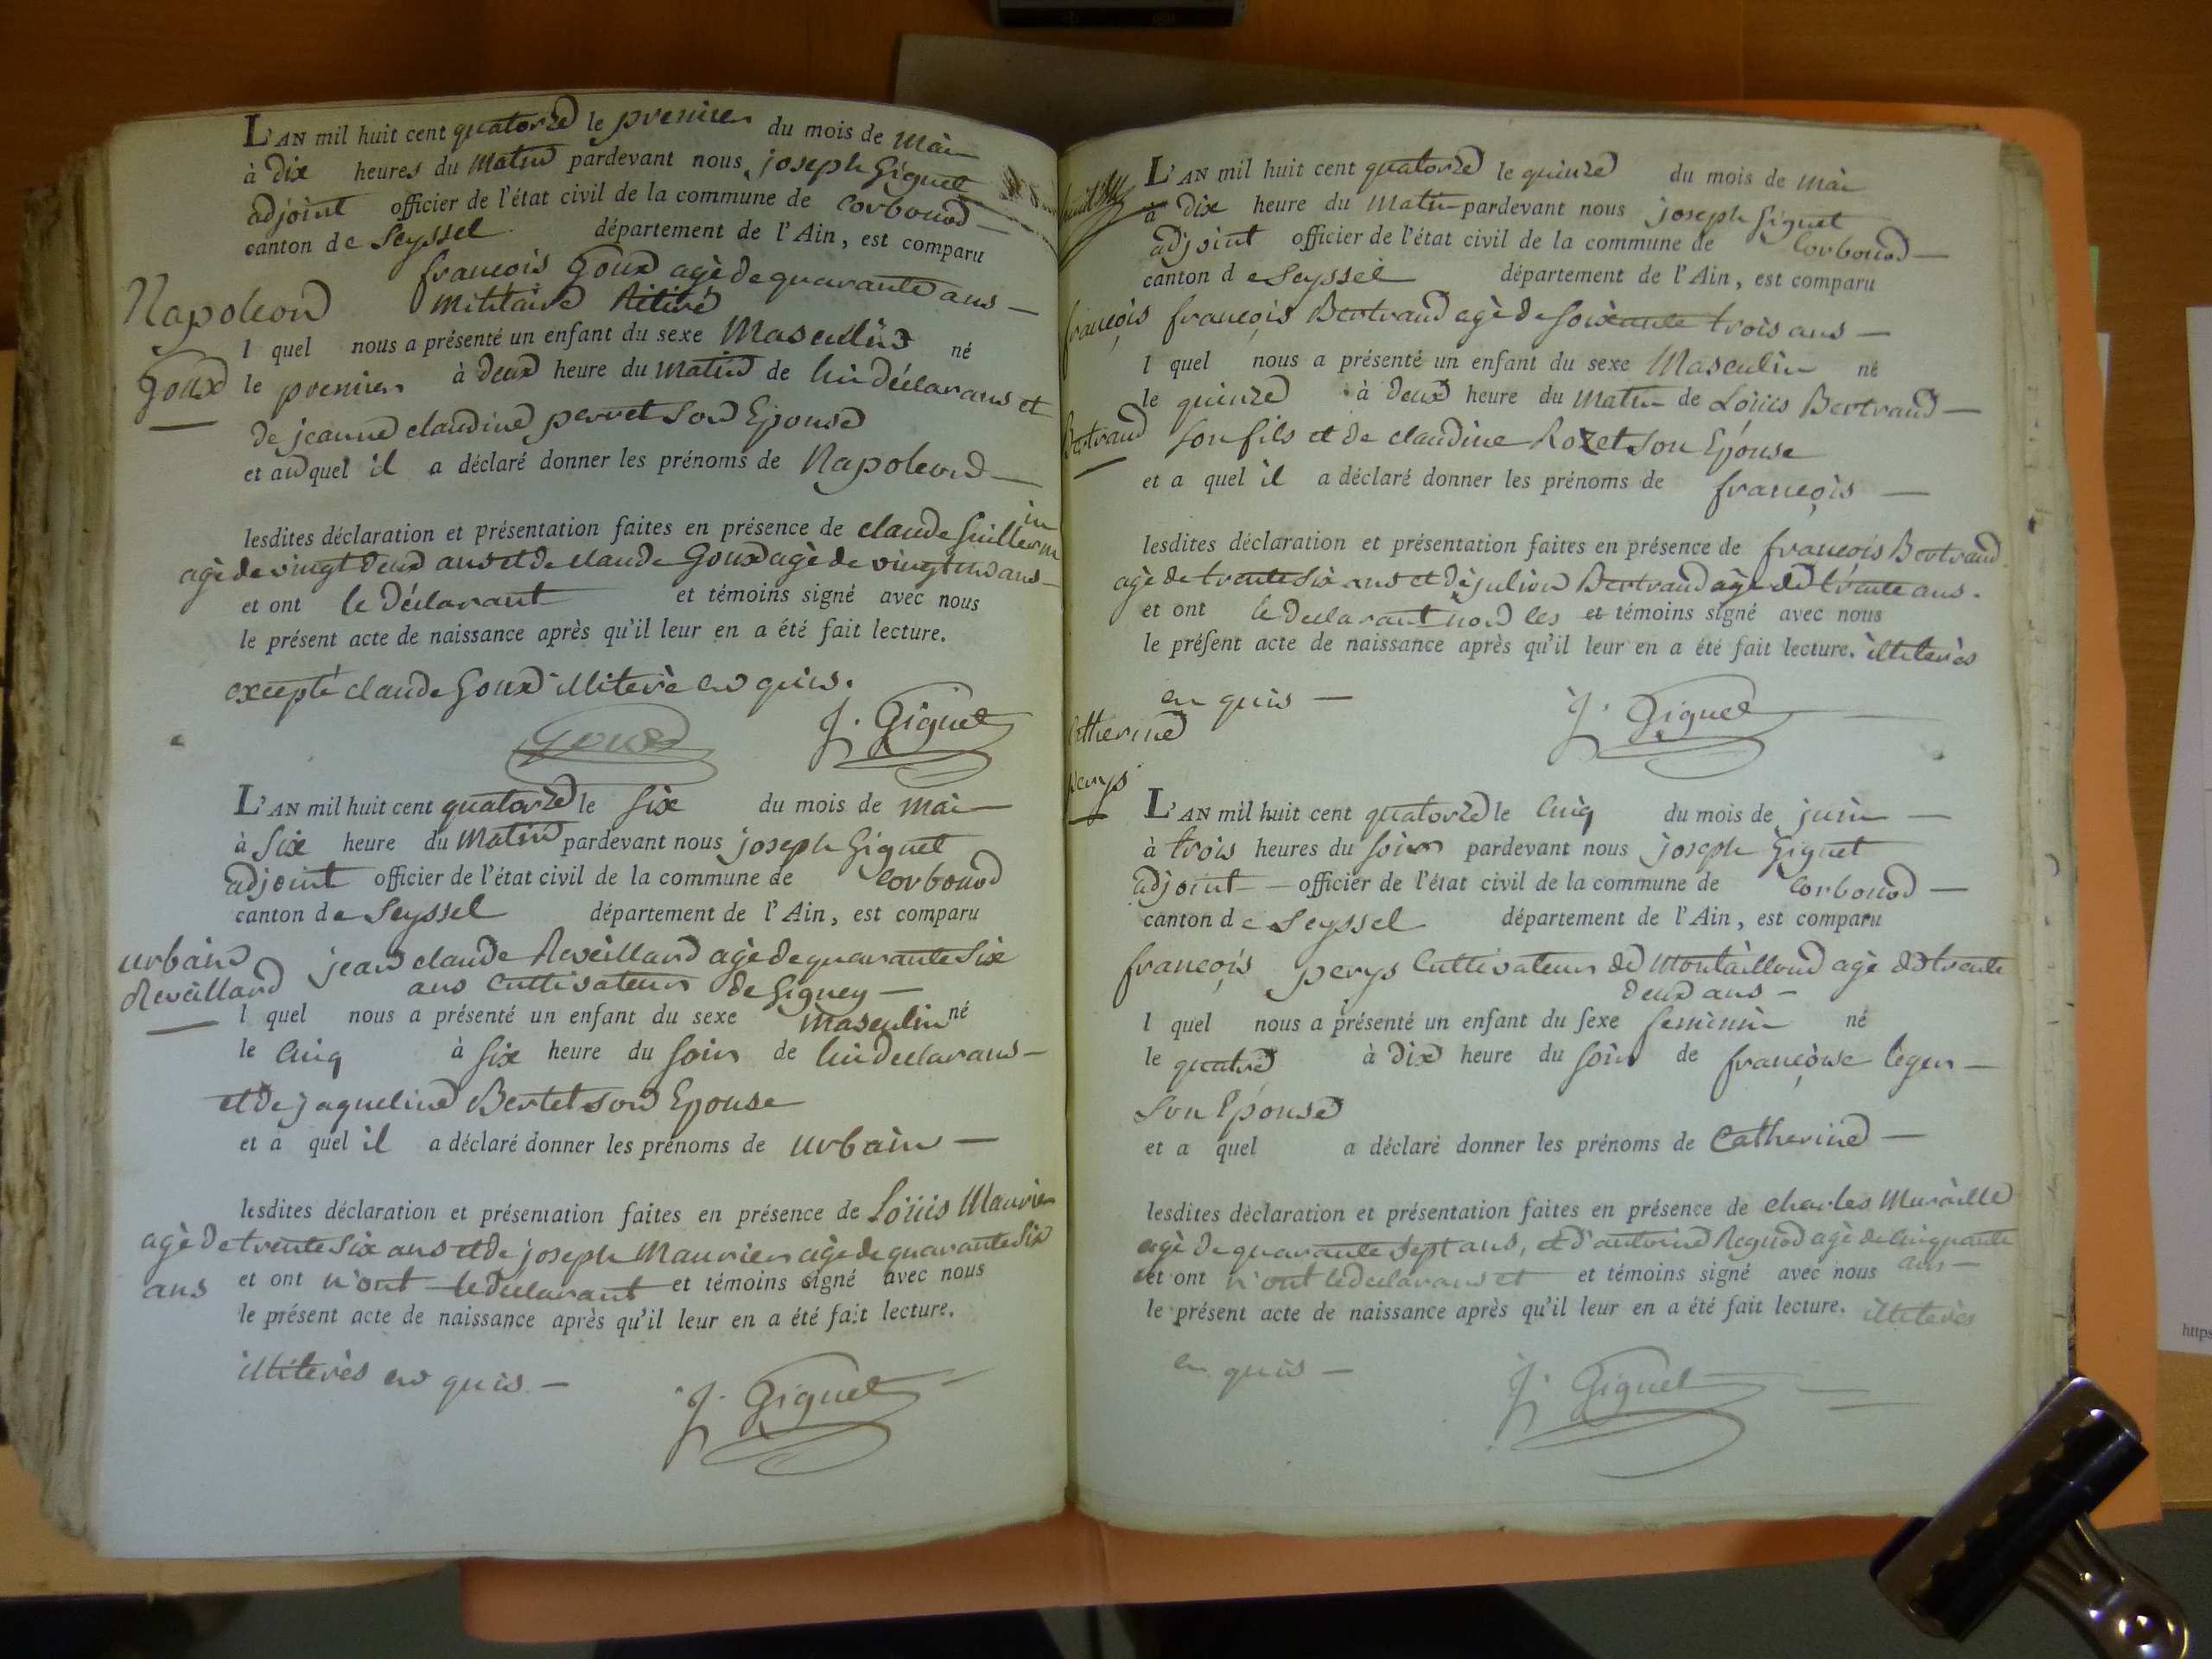 L'AN mil huit cent quatorze le premier du mois de mai
à dix heures du matin pardevant nous joseph Giguet
adjoint officier de l'état civil de la commune de Corbonod
canton de Seyssel département de l'Ain, est comparu
françois Goux agè de quarante ans
Napoleon militaire Rétiré
l quel nous a présenté un enfant du sexe Masculin né
Goux le premier à deux heure du matin de lui déclarans et
de jeanne claudine perret Son Epouse
et au quel il a déclaré donner les prénoms de Napoleon
lesdites déclaration et présentation faites en présence de claude Guillermin
agè de vingt deux ans et de claude Goux agè de vingt un ans
et ont le déclarant et témoins signé avec nous
le présent acte de naissance après qu'il leur en a été fait lecture.
excepté claude Goux illiterè en quis.
Goux J. Giguet
L'AN mil huit cent quatorze le six du mois de mai
à six heure du matin pardevant nous joseph Giguet
adjoint officier de l'état civil de la commune de Corbonod
canton de Seyssel département de l'Ain, est comparu
urbain jean claude Reveillard agè de quarante six
Reveillard ans Cultivateur de Gigney
l quel nous a présenté un enfant du sexe masculin né
le Cinq à six heure du soir de lui declarans
et de jaqueline Bertet son Epouse
et a quel il a déclaré donner les prénoms de urbain
lesdites déclaration et présentation faites en présence de Loüis Maurier
agè de trente six ans et de joseph Maurier agè de quarante six
ans et ont n'ont le declarant et témoins signé avec nous
le présent acte de naissance après qu'il leur en a été fait lecture.
illiterès en quis
J. Giguet
L'AN mil huit cent quatorze le quinze du mois de mai
à dix heure du matin pardevant nous joseph Giguet
adjoint officier de l'état civil de la commune de Corbonod
canton de Seyssel département de l'Ain, est comparu
françois françois Bertrand agè de soixante trois ans
l quel nous a présenté un enfant du sexe Masculin né
le quinze à deux heure du matin de Loüis Bertrand
Bertrand son fils et de claudine Rozet son Epouse
et a quel il a déclaré donner les prénoms de françois
lesdites déclaration et présentation faites en présence de françois Bertrand
agè de trente six ans et de julien Bertrand agè de trente ans.
et ont le declarant non les et témoins signé avec nous
le présent acte de naissance après qu'il leur en a été fait lecture. illiterès
en quis
J. Giguet
Catherine
perys
L'AN mil huit cent quatorze le Cinq du mois de juin
à trois heures du soir pardevant nous joseph Giguet
adjoint officier de l'état civil de la commune de Corbonod
canton de Seyssel département de l'Ain, est comparu
françois perys Cultivateur de agè de trente
deux ans
l quel nous a présenté un enfant du sexe feminin né
le quatre à dix heure du soir de françoise leger
son Epouse
et a quel a déclaré donner les prénoms de Catherine
lesdites déclaration et présentation faites en présence de charles Muraille
agè de quarante sept ans, et d'antoine agè de cinquante
et ont n'ont le declarans et et témoins signé avec nous ans
le présent acte de naissance après qu'il leur en a été fait lecture. illiterès
en quis
J. Giguet
https